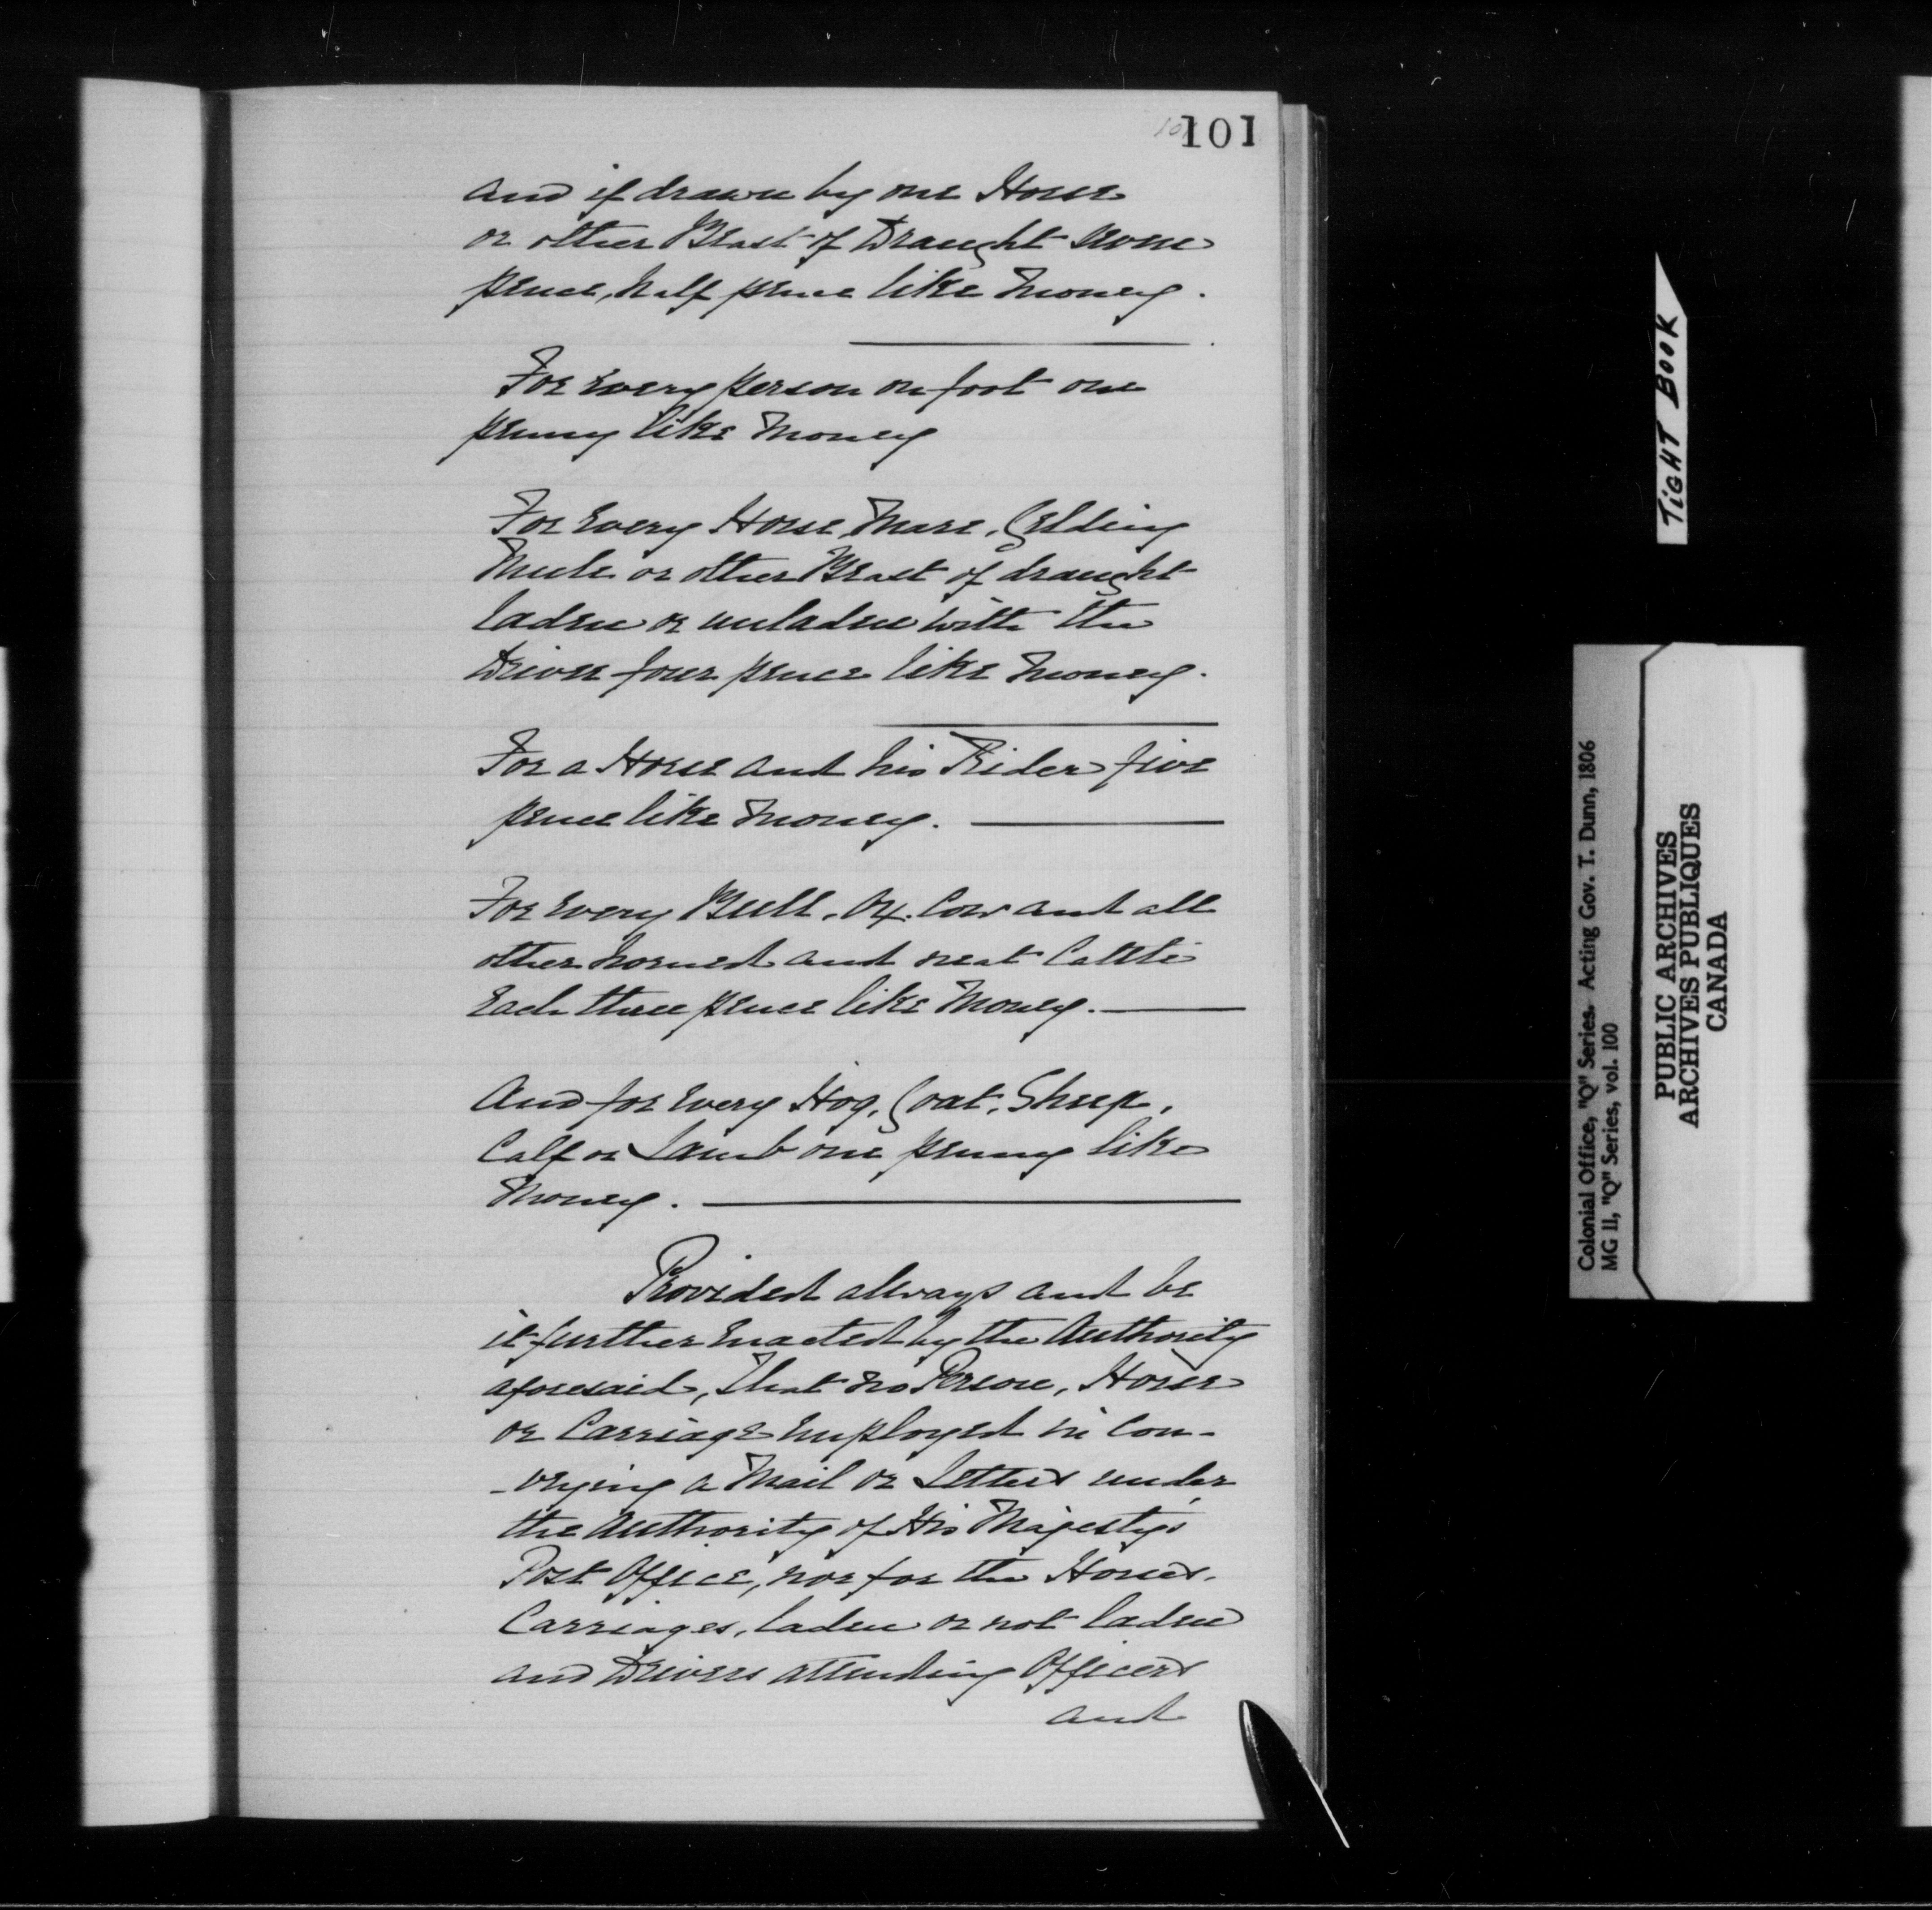 101
and if drawn by one Horse
or other Beast of Draught seven
pence, half pence like money.
For every person on foot one
penny like money
For every Horse, Mare, Gelding
Mule or other Beast of draught
laden or unladen with the
Driver four pence like money.
For a Horse and his Rider five
pence like money.
For every Bull, Ox, Cow and all
other horned and neat Cattle
Each three pence like money.
And for every Hog, Goat, Sheep,
Calf or Lamb one penny like
money.
Provided always and be
it further Enacted by the Authority
aforesaid, That no Person, Horse
or Carriage employed in Con-
-veying a Mail or Letters under
the Authority of His Majesty's
Post Office, nor for the Horses,
Carriages, laden or not laden
and Drivers attending Officers
and
TIGHT BOOK
Colonial Office, "Q" Series. Acting Gov. T. Dunn, 1806
MG 11, "Q" Series, vol. 100
PUBLIC ARCHIVES
ARCHIVES PUBLIQUES
CANADA